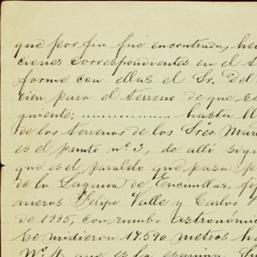 que por fin fué encontrada, he
ciones correspondientes en el
forme con ellas el Sr. Del
ción para el terreno de que se
guiente: .............. hasta
de los terrenos de los Sres. Mar
es el punto nº 3, de allí sigu
que es el paralelo que pasa p
de la Laguna de Encinillas, fi
nieros Felipe Valle y Carlos
de 1885, con rumbo astronómic
Se midieron 17590 metros ha
Nº 4 que es la esquina